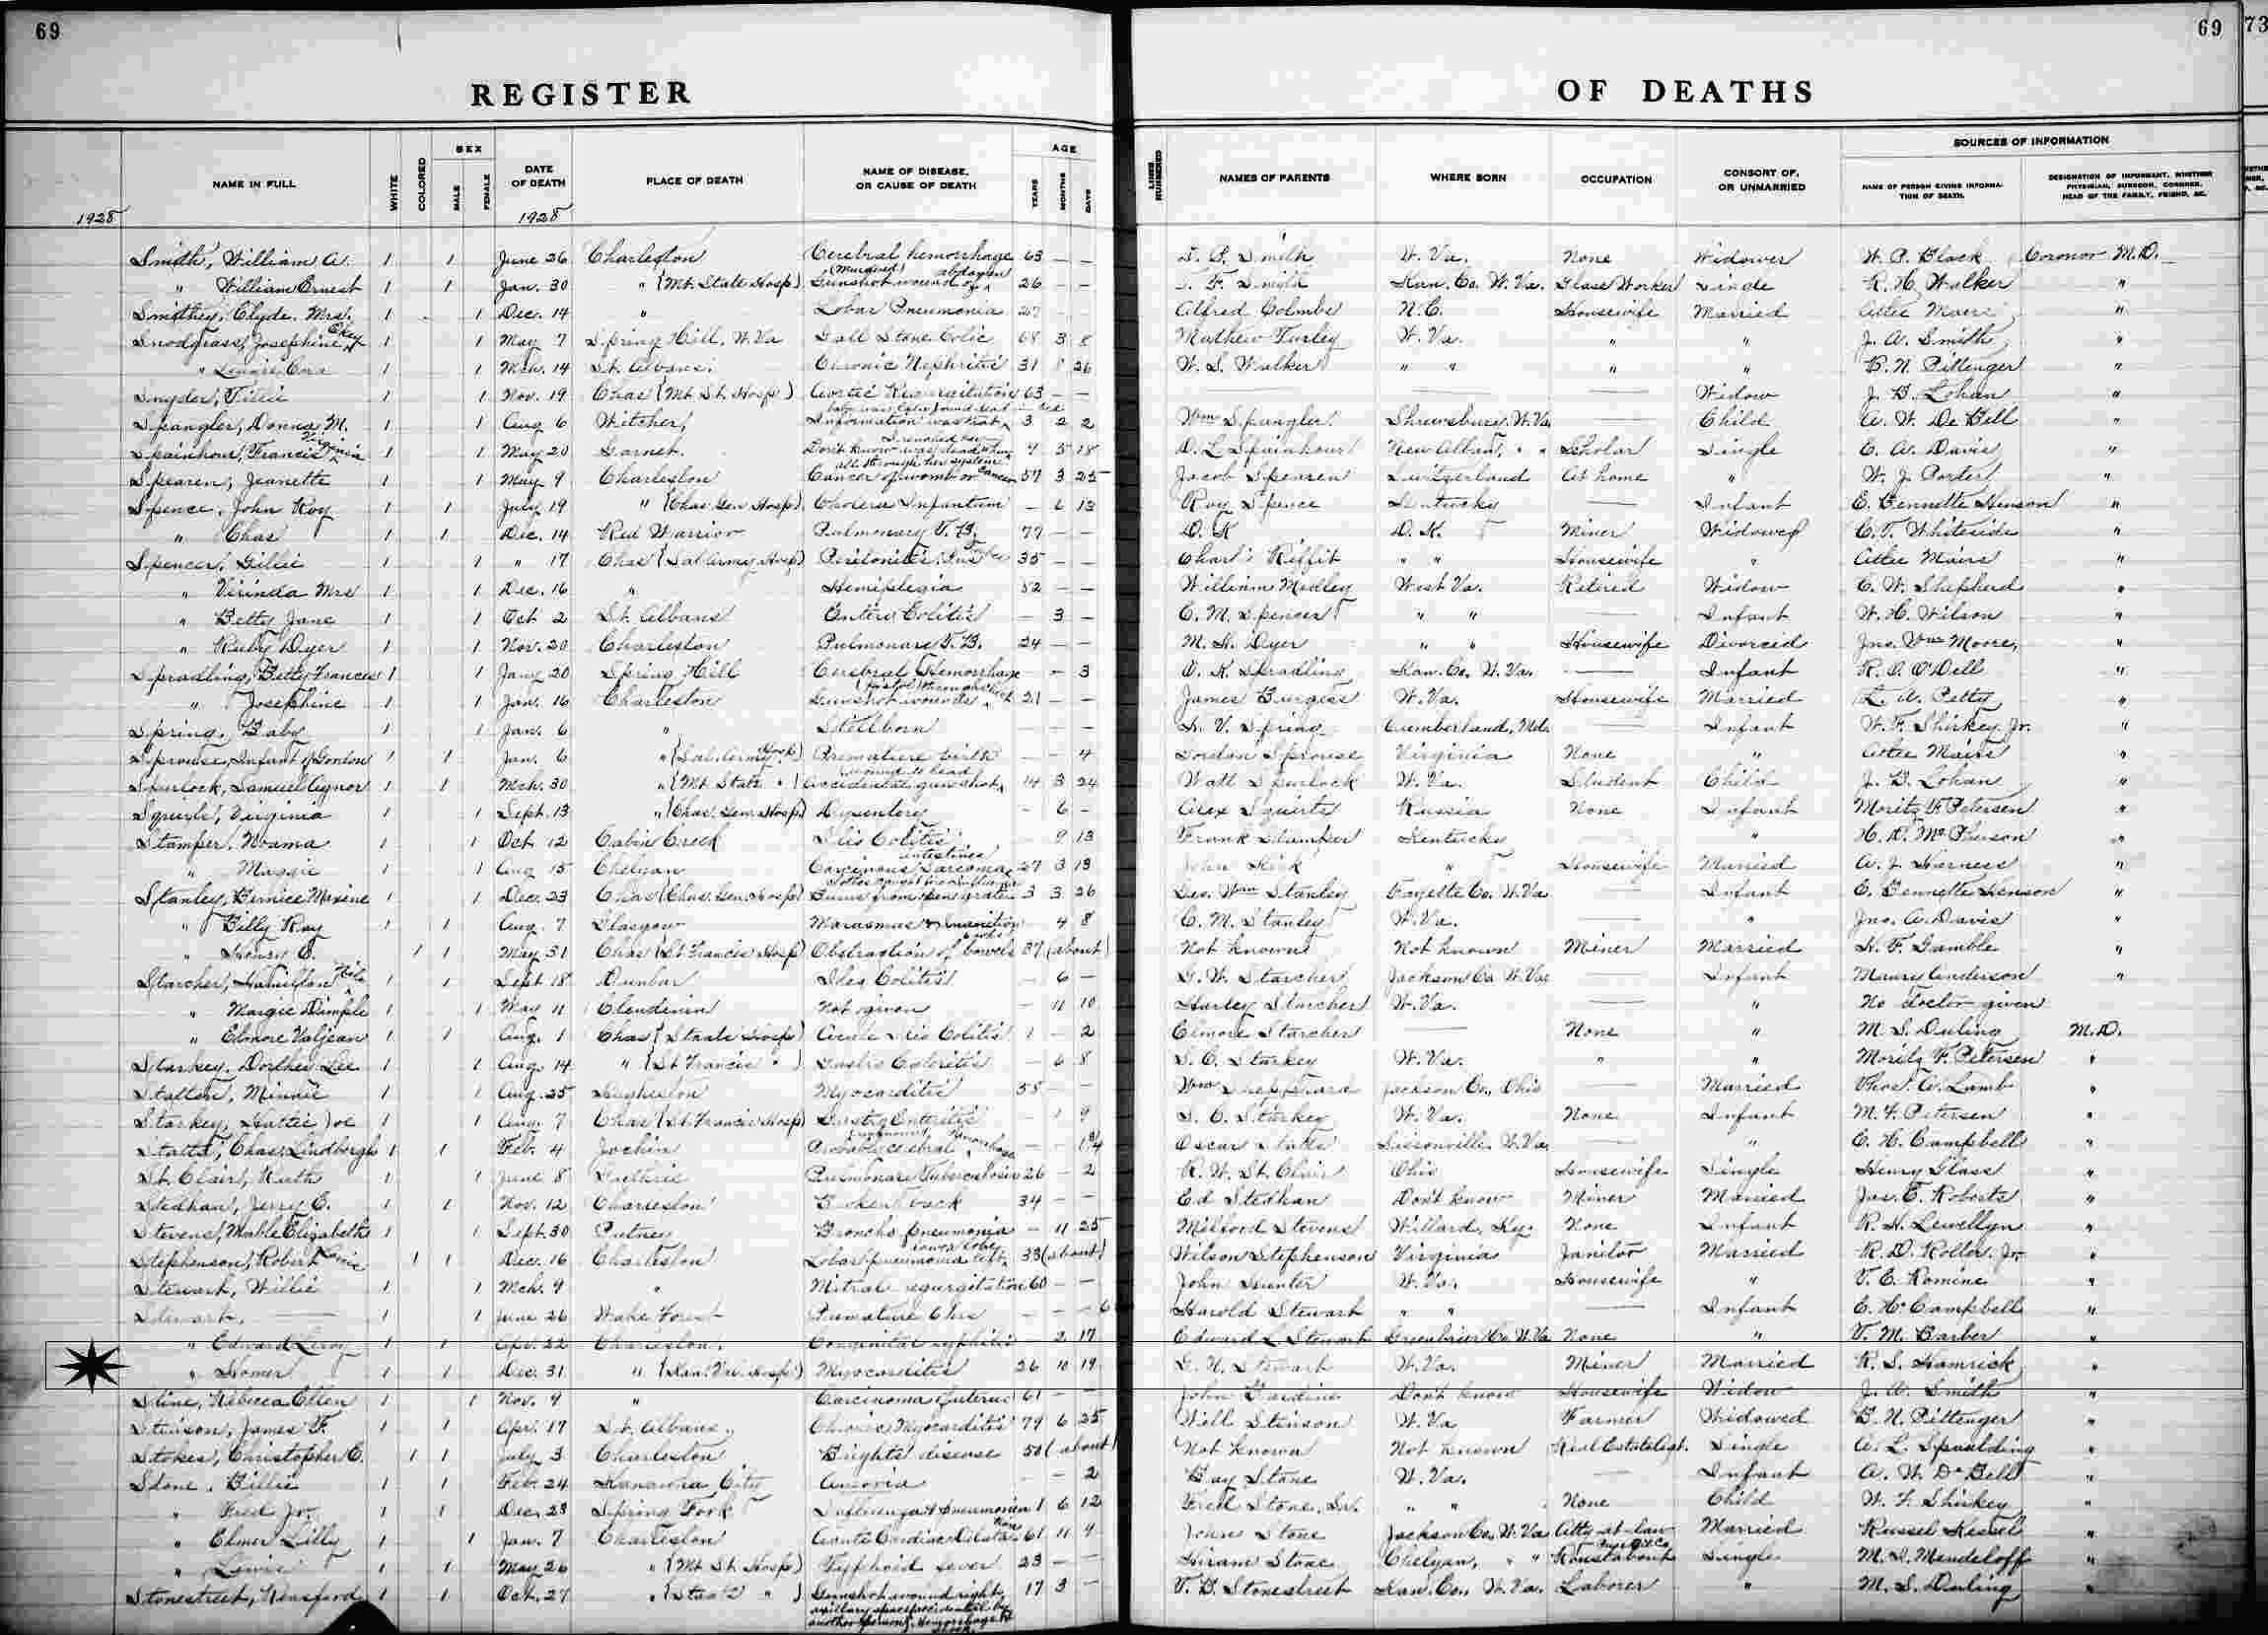 69
69
73
REGISTER
OF DEATHS
NAME IN FULL
WHITE
COLORED
SEX
MALE
FEMALE
DATE OF DEATH
PLACE OF DEATH
NAME OF DISEASE, OR CAUSE OF DEATH
AGE
YEARS
MONTHS
DAYS
LINES NUMBERED
NAMES OF PARENTS
WHERE BORN
OCCUPATION
CONSORT OF, OR UNMARRIED
SOURCES OF INFORMATION
NAME OF PERSON GIVING INFORMATION OF DEATH.
DESIGNATION OF INFORMANT, WHETHER PHYSICIAN, SURGEON, CORONER, HEAD OF THE FAMILY, FRIEND, &C.
1928 1928
Smith, William A. 1 1 June 26 Charleston Cerebral hemorrhage 63 — — Smith W. Va. None Widower W. P. Black Coroner M.D.
" William Ernest 1 1 Jan. 30 " (Mt. State Hosp) (Murdered) Gunshot wound of abdomen 26 — — Smith Kan. Co. W. Va. Glass Worker Single R. H. Walker "
Smithey, Clyde. Mrs. 1 1 Dec. 14 " Lobar Pneumonia — Alfred N.C. Housewife Married "
Snodgrass, Josephine 1 1 May 7 Spring Hill, W. Va Gall Stone Colic 68 3 8 Mathew Turley W. Va. " " J. A. Smith "
" Cora 1 1 Mch. 14 St. Albans. Chronic Nephritis 31 26 W. S. Walker " " " " B. N. Pittenger "
Snyder, Tillie 1 1 Nov. 19 Chas (Mt. St. Hosp) Aortic Regurgitation 63 — — Widow J. B. Lohan "
Spangler, Donna M. 1 1 Aug 6 Witcher, Information was that baby was 3 2 2 Wm Spangler Shrewsbury, W. Va. Child A. W. De Bell "
Spainhour, Francis Virginia 1 1 May 20 Garnet. Don't know was dead when I reached her 5 18 D. L. Spainhour New Albany, " " Scholar Single C. A. Davis "
Spearen, Jeanette 1 1 May 9 Charleston Cancer of womb or Cancer all through her system 57 3 25 Jacob Spearen Switzerland At home " W. J. Porter "
Spence, John Roy 1 1 July 19 " (Chas Gen Hosp) Cholera Infantum — 6 13 Roy Spence Kentucky Infant E. Bennette Henson "
" Chas 1 1 Dec. 14 Red Warrior Pulmonary T. B. 77 — — D. K D. K. Miner Widowed C. T. Whiteside "
Spencer, Gillie 1 1 " 17 Chas (Sal Army Hosp) Peritonitis 35 — — Charl's " " Housewife " "
" Virinda Mrs 1 1 Dec. 16 " Hemiplegia 52 — — William Medley West Va. Retired Widow C. W. Shepherd "
" Betty Jane 1 1 Oct 2 St. Albans Entero Colitis — 3 — C. M. Spencer " " Infant W. H. Wilson "
" Ruby Dyer 1 1 Nov. 20 Charleston Pulmonary T. B. 24 — — M. H. Dyer " " Housewife Divorced Jno. Wm Moore, "
Spradling, Betty Frances 1 1 Jany 20 Spring Hill Cerebral Hemorrhage — — 3 O. K. Spradling Kan. Co. W. Va. Infant R. S. O'Dell "
" Josephine 1 1 Jan. 16 Charleston Gunshot wounds (pistol) through 21 — — James Burgess W. Va. Housewife Married L. A. Petty "
Spring, Baby 1 1 Jan. 6 " Stillborn — — — Spring Cumberland, Md. Infant W. F. Shirkey Jr. "
Sprouse, Infant of Gordon 1 1 Jan. 6 " (Sal. Army Hosp) Premature birth — — 4 Gordon Sprouse Virginia None " "
Spurlock, Samuel Aynor 1 1 Mch. 30 " (Mt State " ) Accidental gunshot wound to head 14 3 24 Watt Spurlock W. Va. Student Child J. B. Lohan "
Virginia 1 1 Sept. 13 " (Chas. Gen. Hosp) Dysentery — 6 — Alex Russia None Infant Moritz F. Petersen "
Stamper, Noama 1 1 Oct 12 Cabin Creek Ileo Colitis — 9 13 Frank Stamper Kentucky " H. D. McPherson "
" Maggie 1 1 Aug 15 Chelyan Sarcoma intestines 27 3 13 John " Housewife Married A. J. Harness "
Stanley, Bernice Maxine 1 1 Dec. 23 Chas (Chas. Gen. Hosp) Burns from open grate 3 3 26 Geo. Wm Stanley Fayette Co. W. Va. Infant E. Bennette Henson "
" Billy Ray 1 1 Aug. 7 Glasgow Marasmus & Inanition 4 8 C. M. Stanley W. Va. " Jno. A. Davis "
" Henry C. 1 1 May 31 Chas (St Francis Hosp) Obstruction of bowels 37 (about) Not known Not known Miner Married H. F. Gamble "
Starcher, Hamilton 1 1 Sept 18 Dunbar Ileo Colitis — 6 — G. W. Starcher Jackson Co. W. Va. Infant Maury Anderson "
" Margie Dimple 1 1 May 11 Clendenin Not given — 11 10 Harley Starcher W. Va. " No doctor given
" Elmore Valjean 1 1 Aug. 1 Chas (Staats Hosp) Ileo Colitis 1 — 2 Elmore Starcher None " M. S. Duling M.D.
Starkey, Dorthea Lee 1 1 Aug. 14 " (St Francis " ) 6 8 S. C. Starkey W. Va. " " Moritz F. Petersen "
Minnie 1 1 Aug. 25 Hugheston Myocarditis 58 — — Wm Sheppard Jackson Co., Ohio Married Thos. A. Lamb "
Starkey, Hattie Joe 1 1 Aug. 7 Chas (St. Francis Hosp) Gastro Enteritis — 1 9 S. C. Starkey W. Va. None Infant M. F. Petersen "
Statts, Chas. Lindbergh 1 1 Feb. 4 Jochin Probably cerebral hemorrhage — — Oscar Sissonville, W. Va. " E. H. Campbell "
St. Clair, Ruth 1 1 June 8 Guthrie Pulmonary Tuberculosis 26 — 2 R. W. St. Clair Ohio Housewife Single Henry Glass "
Stedhan, Jerry C. 1 1 Nov. 12 Charleston Broken back 34 — — Ed Stedhan Don't know Miner Married Jas. E. Roberts "
Stevens, Mable Elizabeth 1 1 Sept. 30 Putney Broncho pneumonia — 11 25 Milford Stevens Willard, Ky. None Infant R. H. Lewellyn "
Stephenson, Robert 1 1 Dec. 16 Charleston Lobar pneumonia left lower lobe 33 (about) Wilson Stephenson Virginia Janitor Married R. D. Roller, Jr. "
Stewart, Willie 1 1 Mch. 9 " Mitral regurgitation 60 — — John Hunter W. Va. Housewife " V. E. Romine "
Stewart, — 1 1 June 26 Wake Forest Premature — — — 6 Harold Stewart " " Infant E. H. Campbell "
" Edward Leroy 1 1 Apr. 22 Charleston. Congenital syphilis — 2 17 Edward L. Stewart Greenbrier Co. W. Va None " T. M. Barber "
" Homer 1 1 Dec. 31 " (Kan. Val. Hosp) Myocarditis 26 10 19 Stewart W. Va. Miner Married R. S. Hamrick "
Stine, Rebecca Ellen 1 1 Nov. 9 " Carcinoma of uterus 61 — — John Don't know Housewife Widow J. A. Smith "
Stinson, James F. 1 1 Apr. 17 St. Albans. Chronic Myocarditis 79 6 25 Will Stinson W. Va Farmer Widowed B. N. Pittenger "
Stokes, Christopher C. 1 1 July 3 Charleston Brights disease 50 (about) Not known Not known Real Estate Agt. Single A. L. Spaulding "
Stone, Billie 1 1 Feb. 24 Kanawha City — — 2 Stone W. Va. Infant A. W. De Bell "
" Fred Jr. 1 1 Dec. 23 Spring Fork Influenza & pneumonia 1 6 12 Fred Stone, Sr. " " None Child W. F. Shirkey "
" Elmer Lilly 1 1 Jan. 7 Charleston Acute Cardiac Dilatation 61 11 9 John Stone Jackson Co., W. Va Atty-at-law Married Russel Kessel "
" Lewis 1 1 May 26 " (Mt St. Hosp) Typhoid fever 23 — — Hiram Stone Chelyan, " " Roustabout Single M. I. Mendeloff "
Stonestreet, Ransford 1 1 Oct. 27 " (Staats " ) Gunshot wound right axillary space accidental by another person. Hemorrhage & shock 17 3 — V. B. Stonestreet Kan. Co., W. Va. Laborer " M. S. Duling "